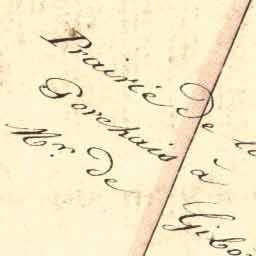 Prairie De
Gorchais à
Mr. De